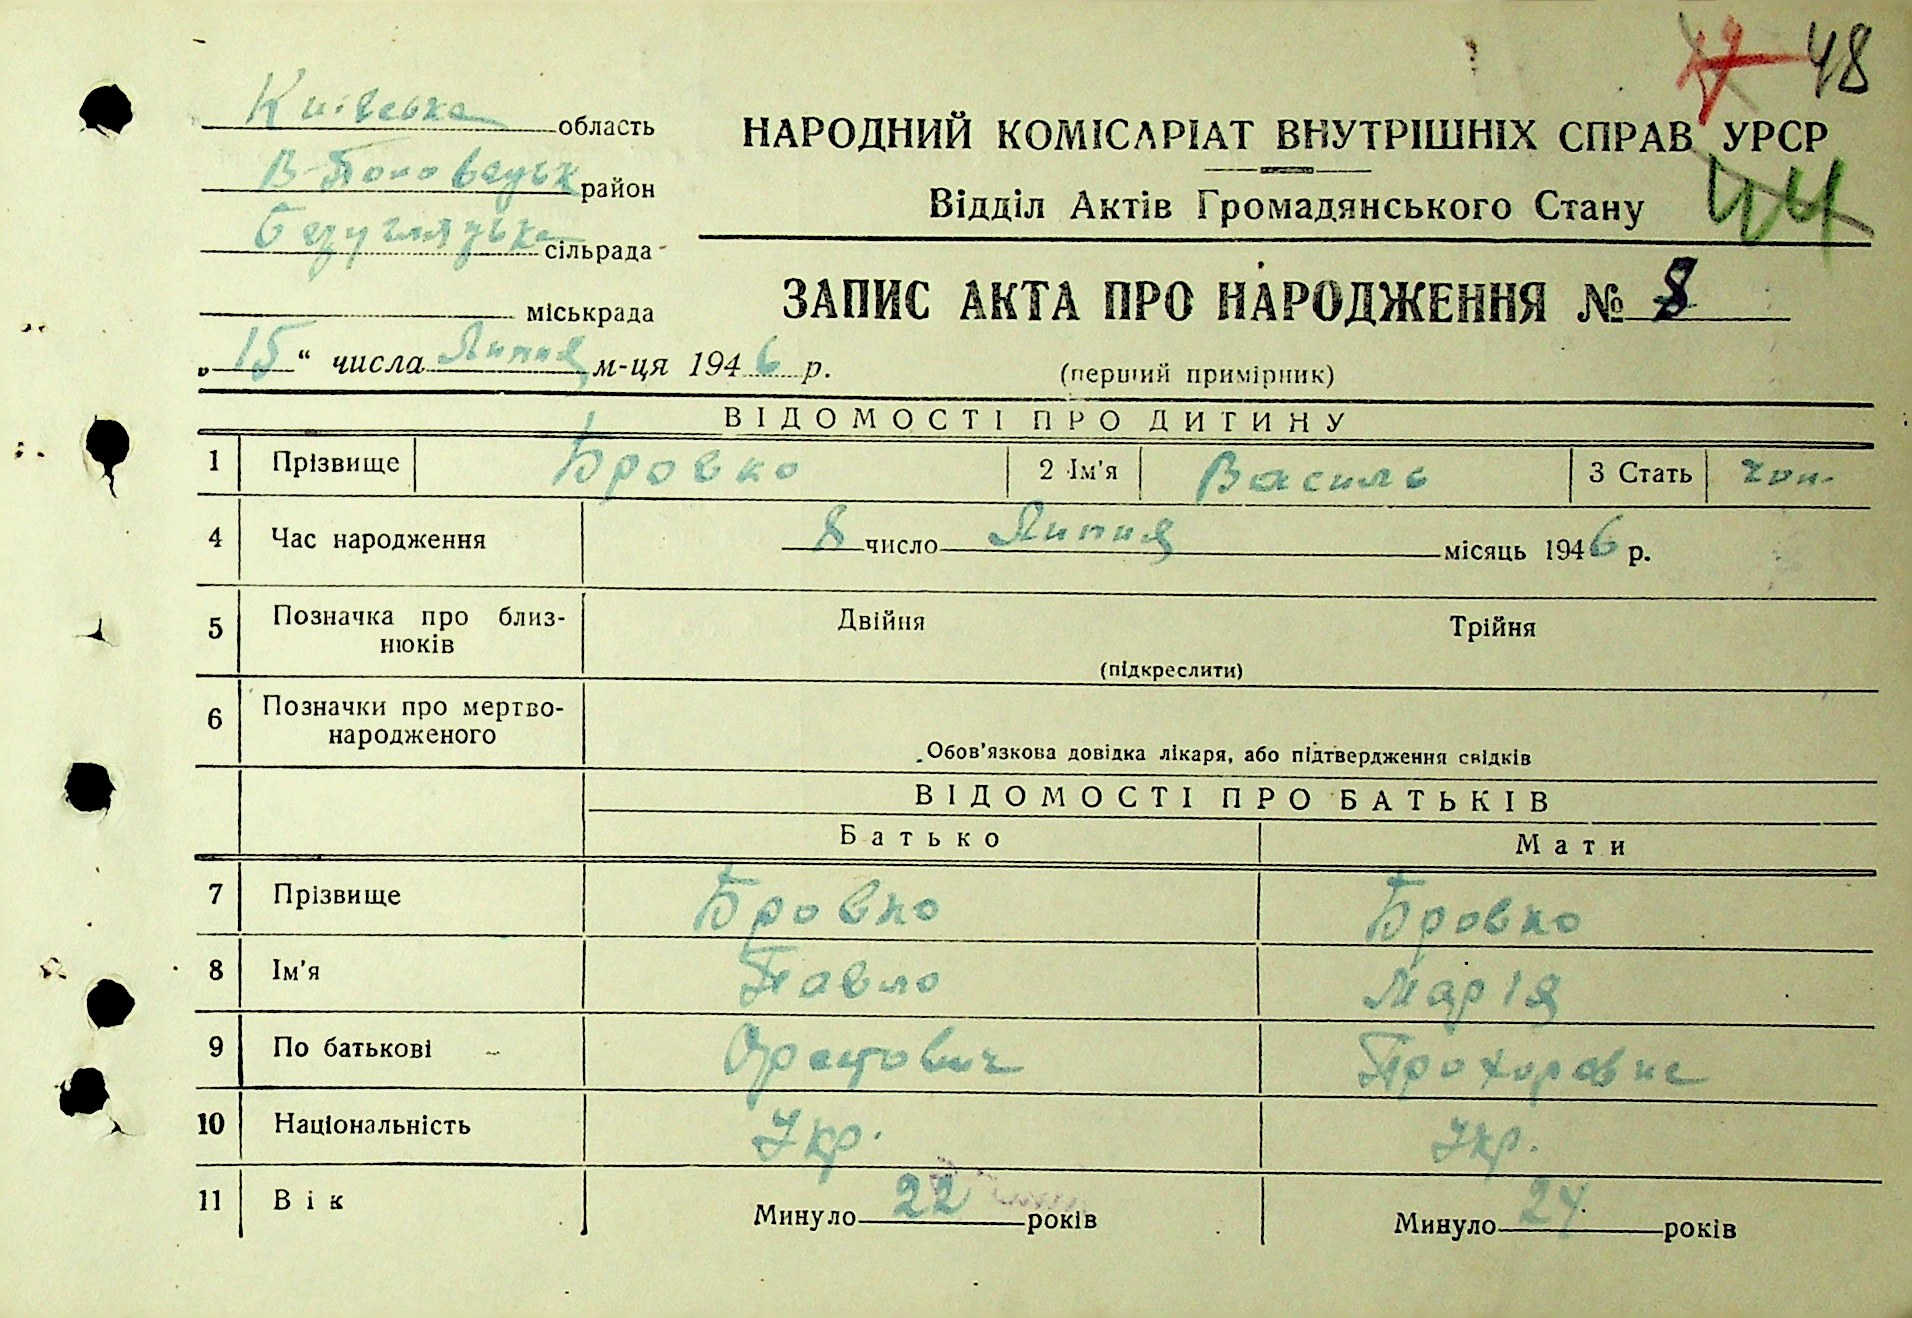 48
Київська область
НАРОДНИЙ КОМІСАРІАТ ВНУТРІШНІХ СПРАВ УРСР
В-Половецьк район
Відділ Актів Громадянського Стану
44
Безугляцька сільрада
ЗАПИС АКТА ПРО НАРОДЖЕННЯ № 8
міськрада
„ 15 “ числа Липня м-ця 1946 р.
(перший примірник)
ВІДОМОСТІ ПРО ДИТИНУ
1 Прізвище Бровко 2 Ім'я Василь 3 Стать чол.
4 Час народження 8 число Липня місяць 1946 р.
5 Позначка про близ-
нюків
Двійня Трійня
(підкреслити)
6 Позначки про мертво-
народженого
Обов'язкова довідка лікаря, або підтвердження свідків
ВІДОМОСТІ ПРО БАТЬКІВ
Батько Мати
7 Прізвище Бровко Бровко
8 Ім'я Павло Марія
9 По батькові Прохоровна
10 Національність Укр. Укр.
11 Вік Минуло 22 років Минуло 24 років